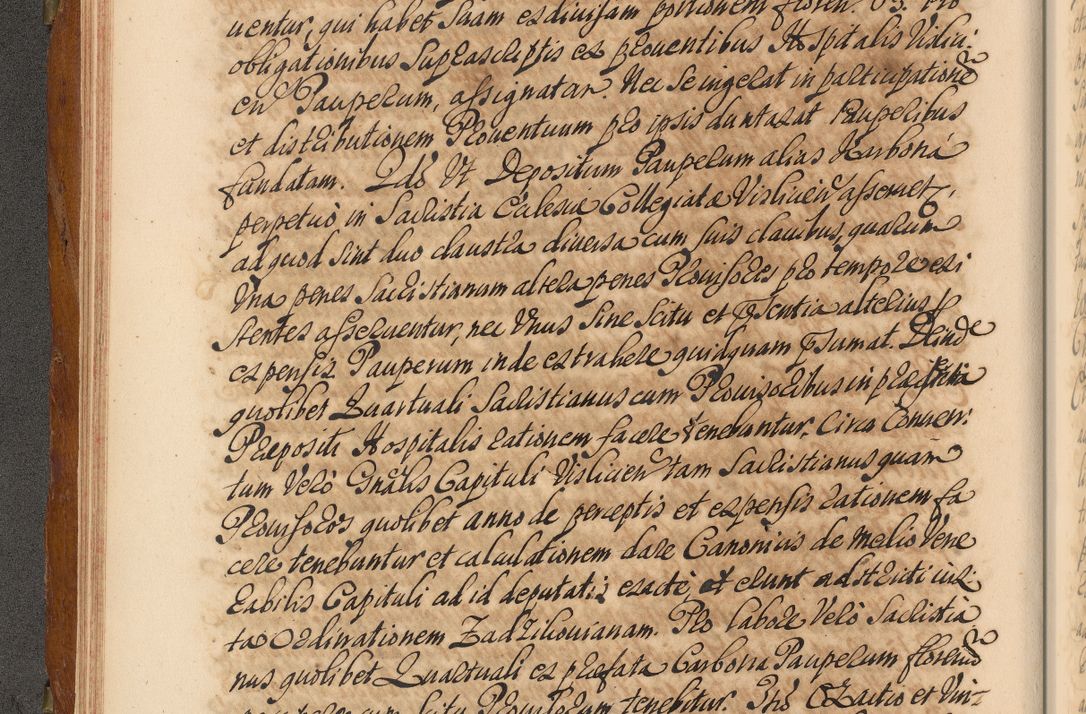 uentur, qui habet suam ex diuisam portionem floren. 63. Pro
obligationibus suprascriptis ex prouentibus Hospitalis Vislici:
en Pauperum, assignatam. Nec se ingerat in participatione
et distributionem Prouentuum pro ipsis duntaxat Pauperibus
fundatam. 2dó Vt Depositum Pauperum alias Karboná
perpetuò in Sacristia Ecclesiæ Collegiatæ Vislicien asseruetr,
ad quod sint duo claustra diuersa cum suis clauibus, quarum
vna penes Sacristianum altera penes Prouisores pro tempore exi
stentes asseruentur, nec vnus sine scitu et Psentia alterius
expensis Pauperum inde extrahere quidquam Psumat. Deinde
quolibet Quartuali Sacristianus cum Prouisoribus in præsentia
Præpositi Hospitalis rationem facere tenebuntur. Circa Conuen:
tum Verò Gnalis Capituli Vislicien tam Sacristianus quam
Prouisores quolibet anno de perceptis et expensis rationem fa
cere tenebuntur et calculationem dare Canonicis de Melio Vene
rabilis Capituli ad id deputatis exactè, et erunt adstricti iux:
ta Ordinationem Zadzikouianam. Pro labore Verò Sacristia
nus quolibet Quartuali ex præfata Carbona Pauperum florenum
cum scitu Prouisorum tenebitur. 3tió Czartio et Vin-